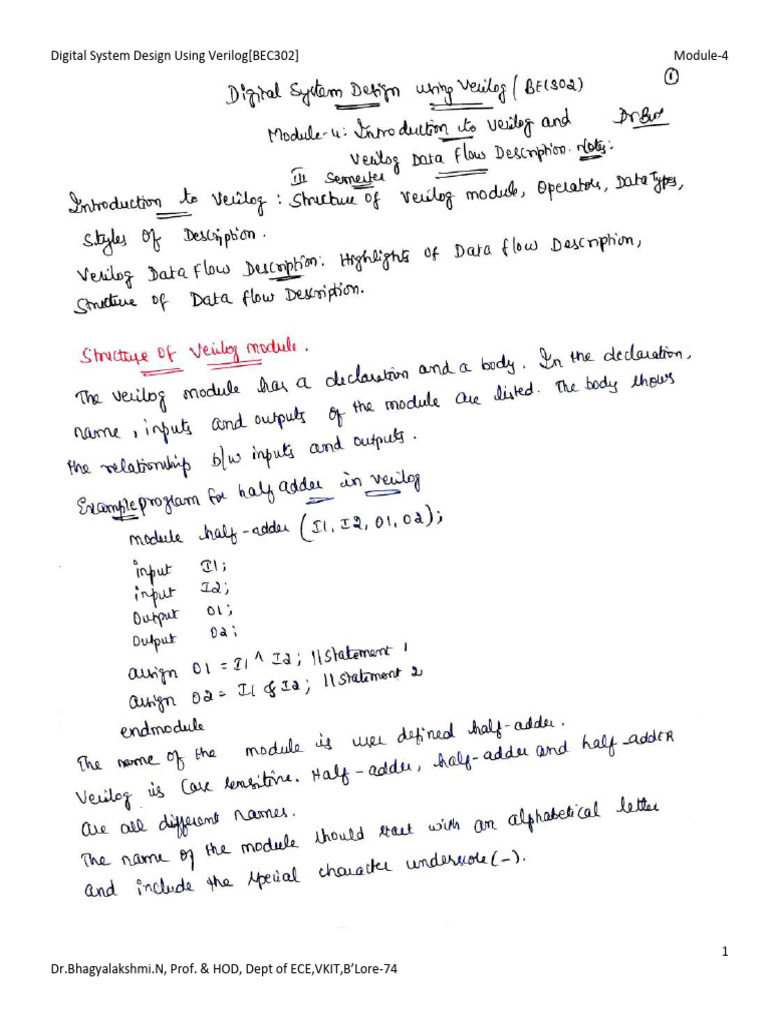 Digital System Design Using Verilog[BEC302] Module-4
1
Digital System Design using Verilog (BEC302)
Module-4: Introduction to Verilog and
Verilog Data Flow Description. Notes:
III Semester
Introduction to Verilog : Structure of Verilog module, Operators, Data Types,
Styles of Description.
Verilog Data Flow Description: Highlights of Data flow Description,
Structure of Data flow Description.
Structure of Verilog module.
The verilog module has a declaration and a body. In the declaration,
name, inputs and outputs of the module are listed. The body shows
the relationship b/w inputs and outputs.
Example program for half adder in verilog
module half-adder (I1, I2, O1, O2);
input I1;
input I2;
Output O1;
Output O2;
assign O1 = I1 ^ I2; //Statement 1
assign O2 = I1 & I2; //Statement 2
endmodule
The name of the module is user defined half-adder.
Verilog is Case sensitive. Half-adder, half-adder and half-adDER
are all different names.
The name of the module should start with an alphabetical letter
and include the special character underscore(-).
1
Dr.Bhagyalakshmi.N, Prof. & HOD, Dept of ECE,VKIT,B'Lore-74